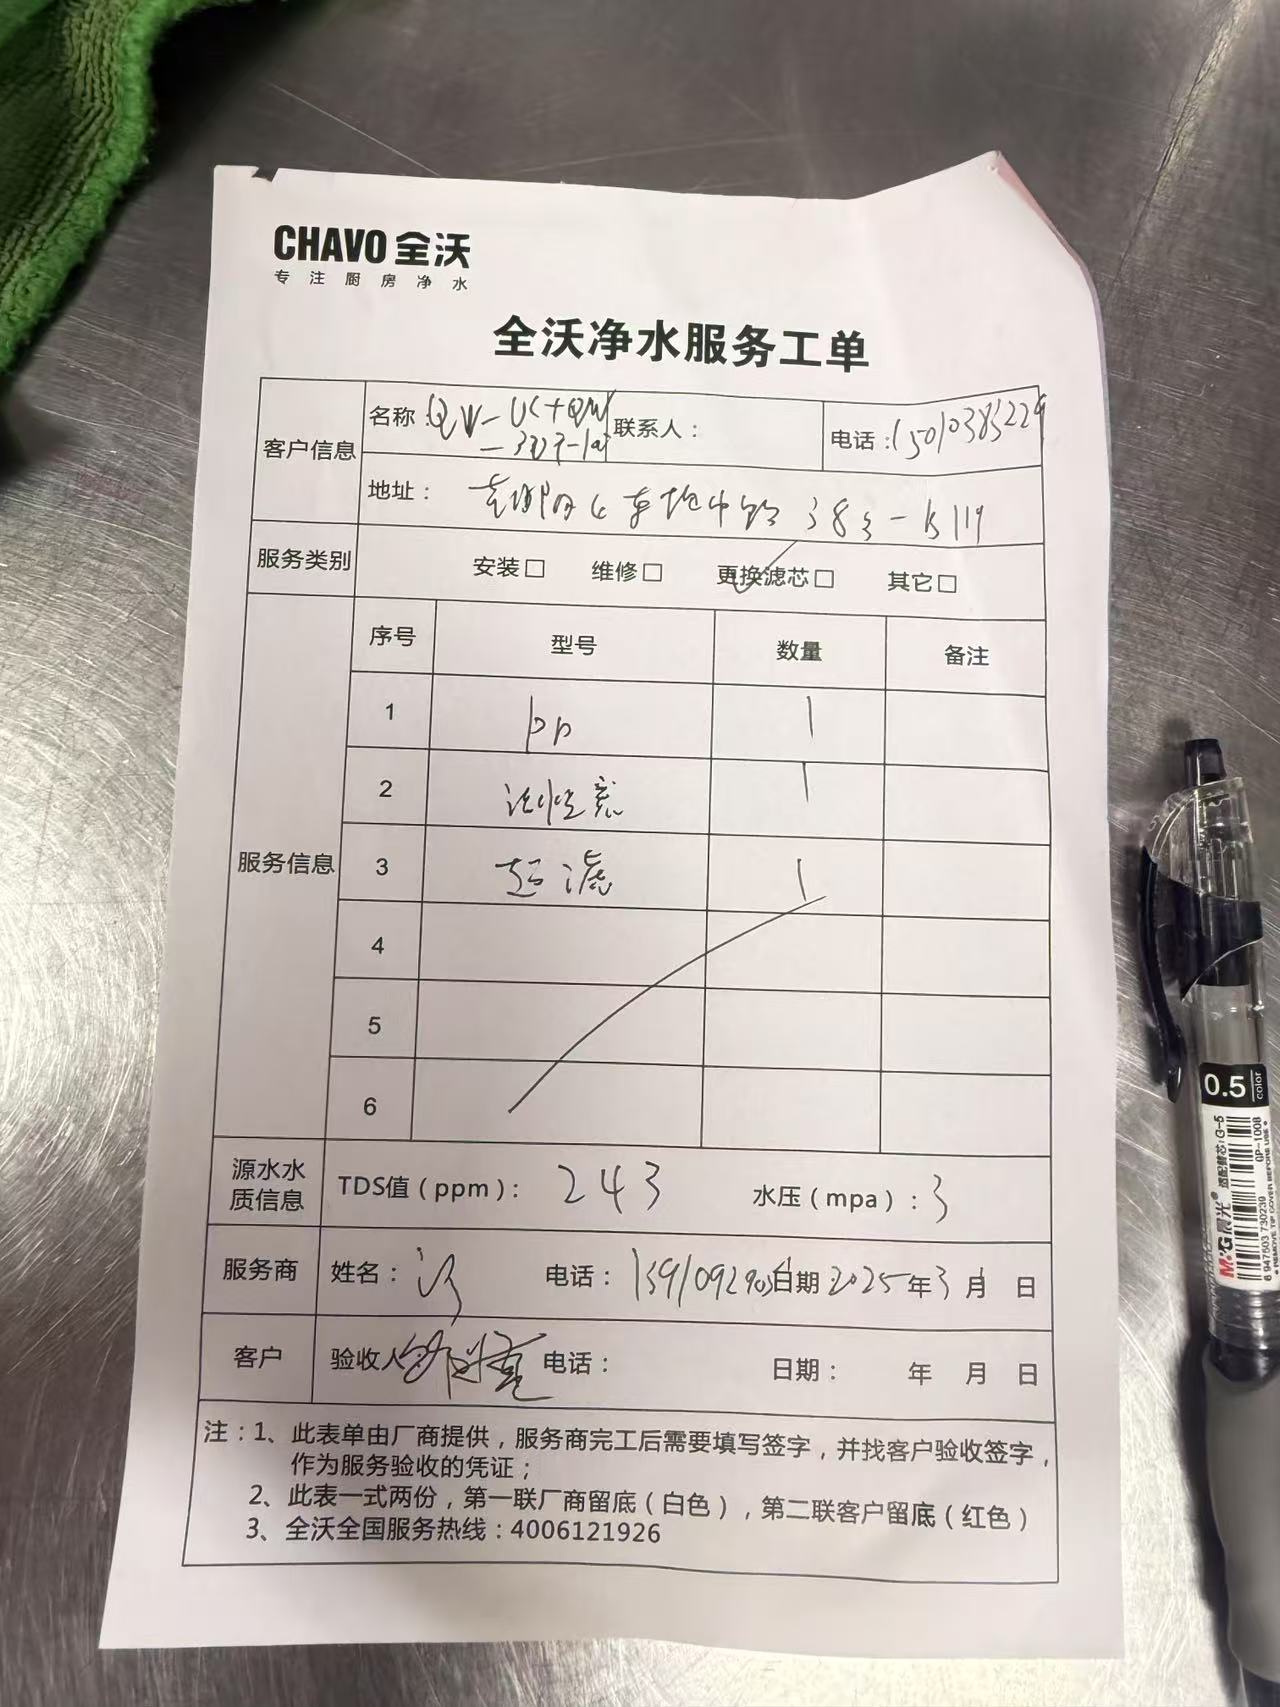 CHAVO 全沃
专注厨房净水
全沃净水服务工单
客户信息
名称:
联系人:
电话:
地址:
服务类别
安装□ 维修□ 更换滤芯□ 其它□
服务信息
序号 型号 数量 备注
1 pp 1
2 活性炭 1
3 超滤 1
4
5
6
源水水质信息
TDS值(ppm): 243 水压(mpa): 3
服务商
姓名: 电话: 日期 2025年3月 日
客户
验收人 电话: 日期: 年 月 日
注:1、此表单由厂商提供,服务商完工后需要填写签字,并找客户验收签字,
作为服务验收的凭证;
2、此表一式两份,第一联厂商留底(白色),第二联客户留底(红色)
3、全沃全国服务热线:4006121926
0.5
color
M&G晨光
适配替芯:G-5
GP-1008
6 947503 730239